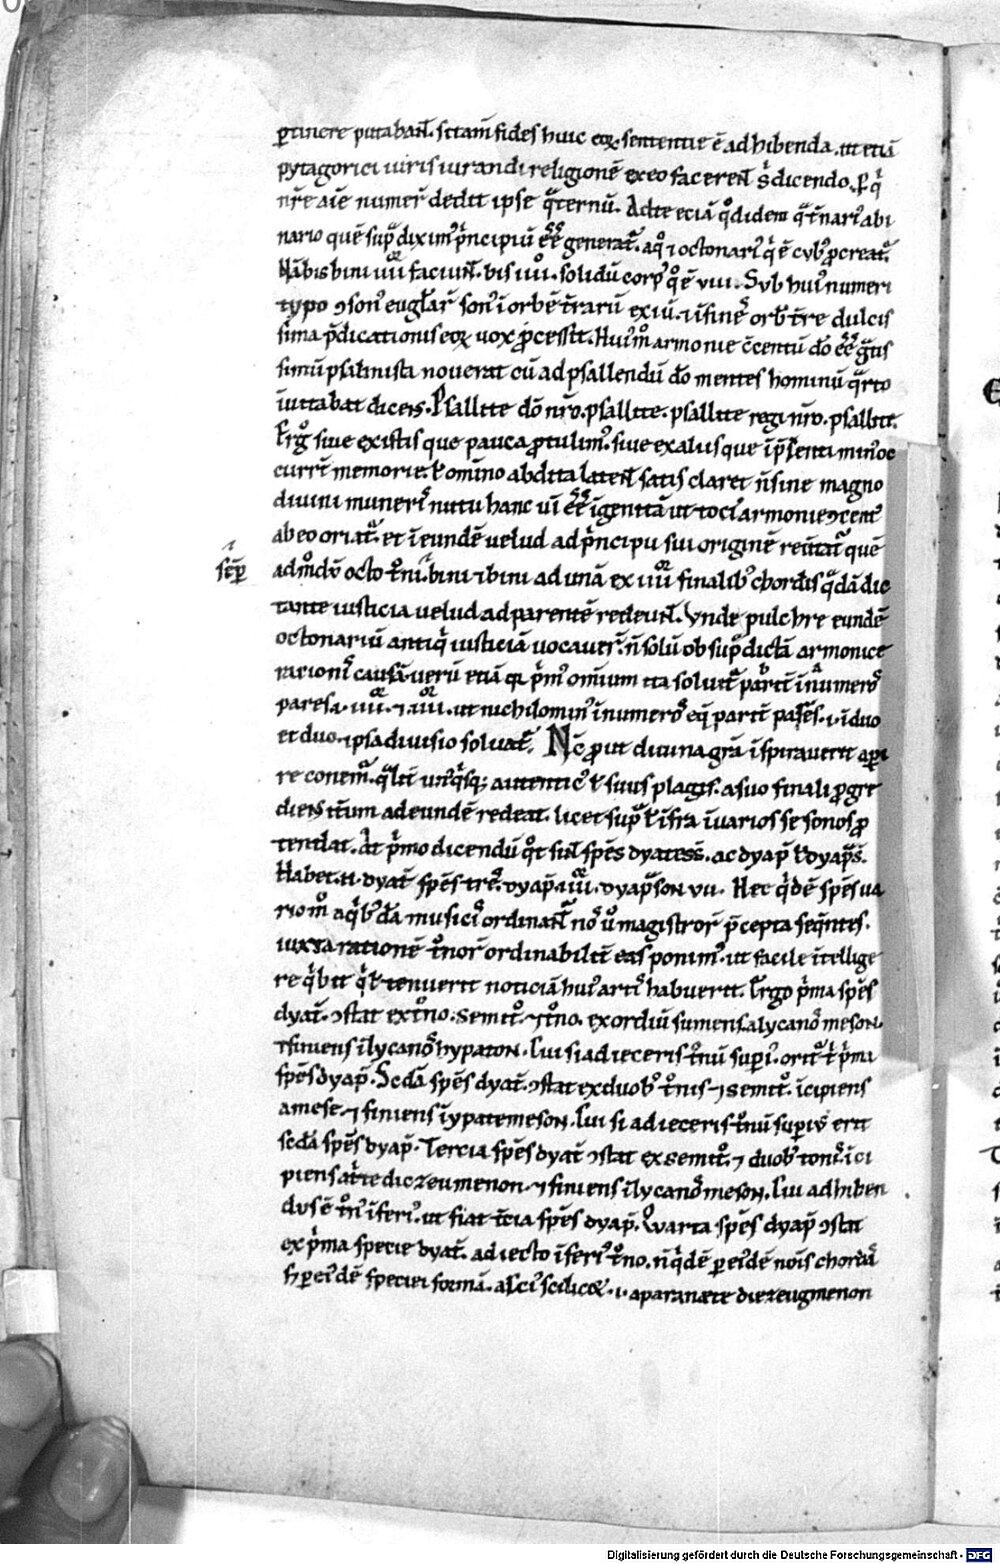 ꝑtinere putabant̄. sitam̄ fides huic eoꝝ sententie ē adhibenda. ut etiā
pytagorici iuris iurandi religionē ex eo facerent̄ s̄ dicendo. ꝑ q̄
nr̄e aīe numeꝝ dedit ipse q̄ternū. Adde eciā qd̄ idem q̄t̄nariꝰ a bi
nario quē sup̄ diximꝰ p̄ncipiū eē̄ generat̄. a quo ⁊ octonariꝰ qi ē cybꝰ ꝓcreat̄.
Nā bis bini iiii faciunt̄. bis iiii. solidū corpꝰ qd̄ ē viii. Sub huiꝰ numeri
typo ꝯsonꝰ euḡliaꝝ sonꝰ ī orbē t̄rarū exiit. ⁊ ī finē orb̄ t̄re dulcis
sima p̄dicationis eoꝝ uox ꝓcessit. Huiꝰm̄ armonie ꝯcentū dō eē̄ ḡtis
simū psalmista nouerat cū ad psallendū dō mentes hominū q̄rto
īuitabat dicens. Psallite dō nr̄o. psallite. psallite regi nr̄o. psallite.
Erg̊ siue ex istis que pauca ꝓtulimꝰ. siue ex aliis que īp̄senti min̄ oc
currt̄ memorie. ł omīno abdita latent̄ satis claret n̄ sine magno
diuini munerꝭ nutu hanc uī eē̄ īgenitā ut tociꝰ armonie ꝯcentꝰ
ab eo oriat̄. et ī eundē uelud ad p̄ncipii sui originē reuertat̄ quē
sēp̄
admōdū octo t̄ni. bini ⁊ bini ad unā ex iiii finalibꝰ chordis q̄dā dic
tante iusticia uelud ad parentē redeunt̄. Vnde pulchre eundē
octonariū antiqi iusticiā uocauer̄t. n̄ solū ob sup̄dictā armonice
rationꝭ causā. uerū etiā qꝛ p̄mꝰ omnium ita soluit̄ parit̄ ī numeros
pares. iiii. ⁊ iiii. ut nichilominꝰ ī numeros eq̄ parit̄ pares. i. ī duo
et duo. ipsa diuisio soluat̄. Nc̄ ꝓut diuina gr̄a īspirauerit aꝑi
re conem̄. qa̅lit̄ unꝰqisqꝫ autenticꝰ ł suus plagis. a suo finali ꝓgre
diens it̄um ad eundē redeat. licet sup̄ ł īfra ī uarios se sonos ꝓ
tendat. At p̄mo dicendū qt̄ sint̄ spēs dyatess̄. ac dyap̄ ł dyap̄s̄.
Habet. n. dyat̄ spēs tres. dyap̄. iiii. dyap̄son vii. Hec qidē spēs ua
rio m̊ a qibꝰdā musicis ordinant̄ nos ū magistroꝝ p̄cepta seqn̄tes.
iuxta rationē t̊noꝝ ordinabilit̄ eas ponimꝰ. ut facile ītellige
re qibit qi ł tenuerit noticiā huiꝰ artis habuerit. Ergo p̄ma spēs
dyat̄. ꝯstat ex t̊no. semit̊. ⁊ t̊no. exordiū sumens a lycanos meson.
⁊ finiens ī lycanos hypaton. Cui si adieceris t̊nū supiꝰ. orit̄ p̄ma
spēs dyap̄. Scd̄a spēs dyat̄. ꝯstat ex duobꝰ t̊nis ⁊ semit̊. īcipiens
a mese. ⁊ finiens ī ypatemeson. Cui si adieceris t̊nū supiꝰ erit
scd̄a spēs dyap̄. Tercia spēs dyat̄ ꝯstat ex semit̊. ⁊ duobꝰ tonis. īci
piens a t̄te diezeumenon. ⁊ finiens ī lycanos meson. Cui adhiben
dus ē t̊nꝰ īferiꝰ. ut fiat t̄cia spēs dyap̄. Quarta spēs dyap̄ ꝯstat
ex p̄ma specie dyat̄. adiecto īferiꝰ t̊no. n̄ qidē ꝑ eidē nōis chordā
ꝑ eidē speciei formā. alciꝰ scilicꝫ. i. a paranæte diezeugmenon
Digitalisierung gefördert durch die Deutsche Forschungsgemeinschaft - DFG